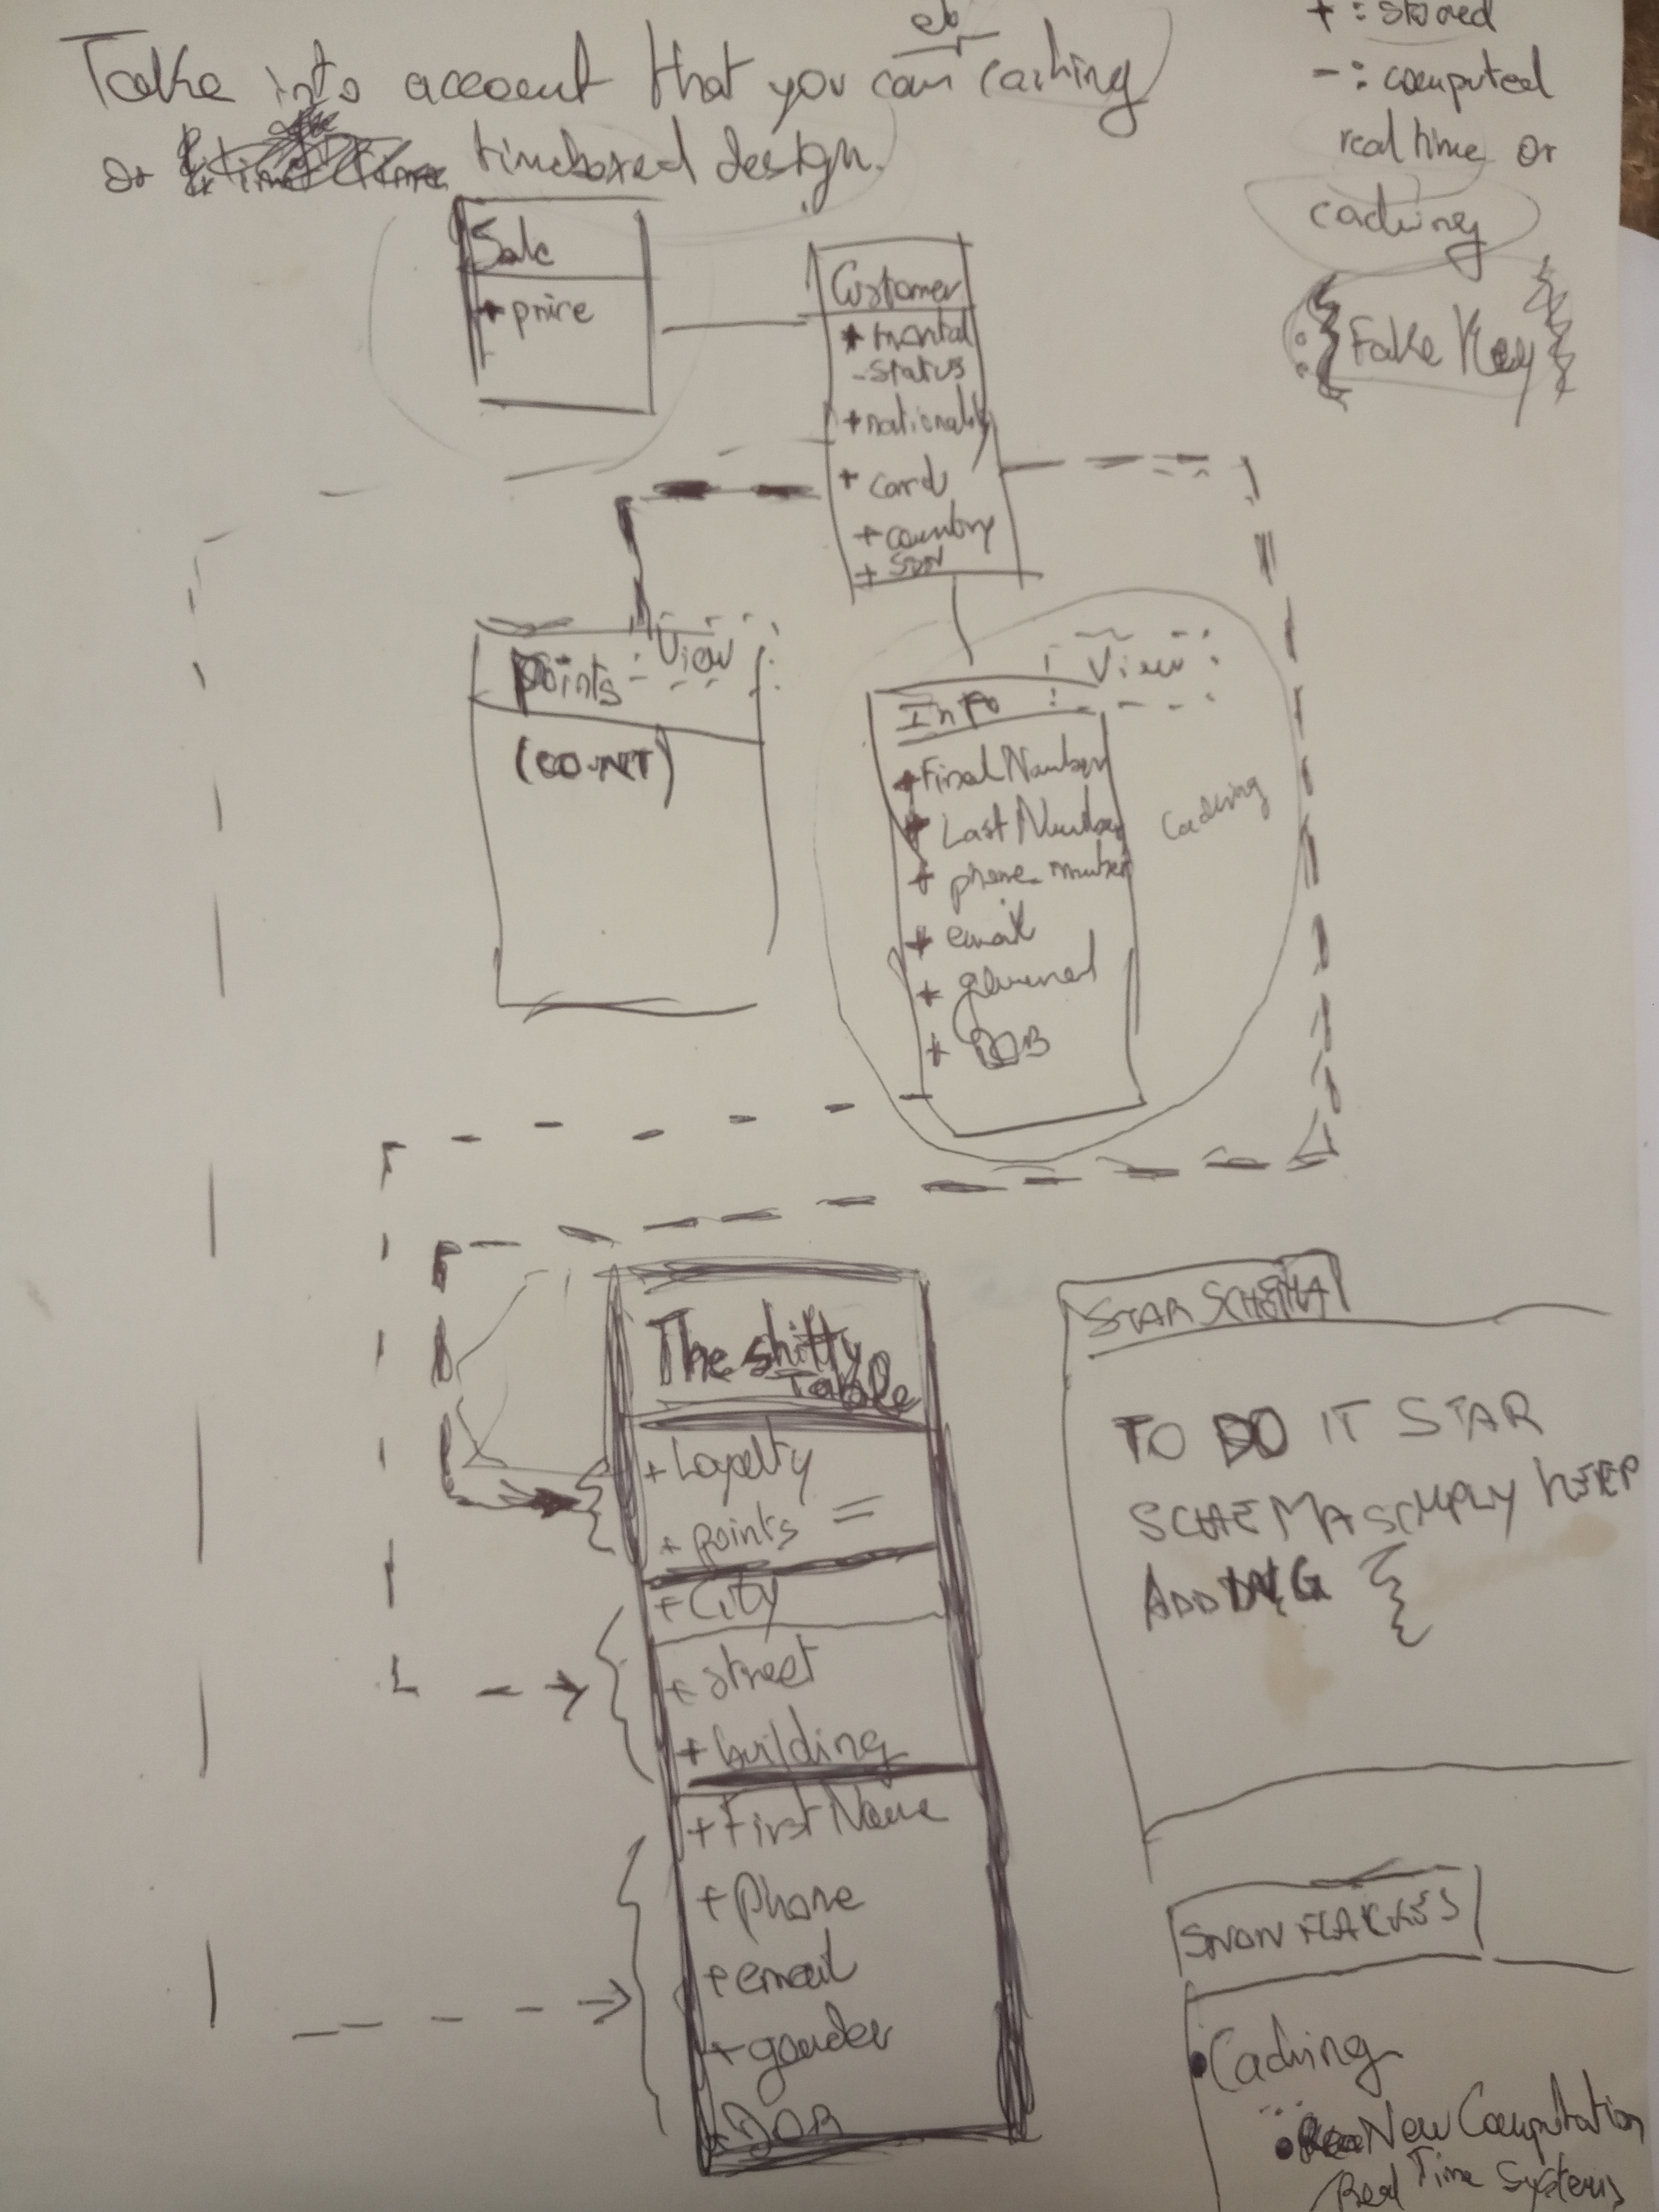 do
Take into account that you can caching
or timeboxed design.
+ : stored
- : computed
real time or
caching
Fake Key
Sale
+ price
Customer
-status
+nationality
+ card
+ country
+ SSN
Points
View
(COUNT)
View
Info
+ Last Number
+ phone-number
+ email
+ DOB
Caching
The shitty
Table
+ Loyalty
+ points =
+ City
+ street
+ building
+ First Name
+ Phone
+ email
+ gender
+ DOB
STAR SCHEMA
TO DO IT STAR
SCHEMA SIMPLY KEEP
ADDING {
SNOW FLAKES
• Caching
• New Computation
Real Time Systems